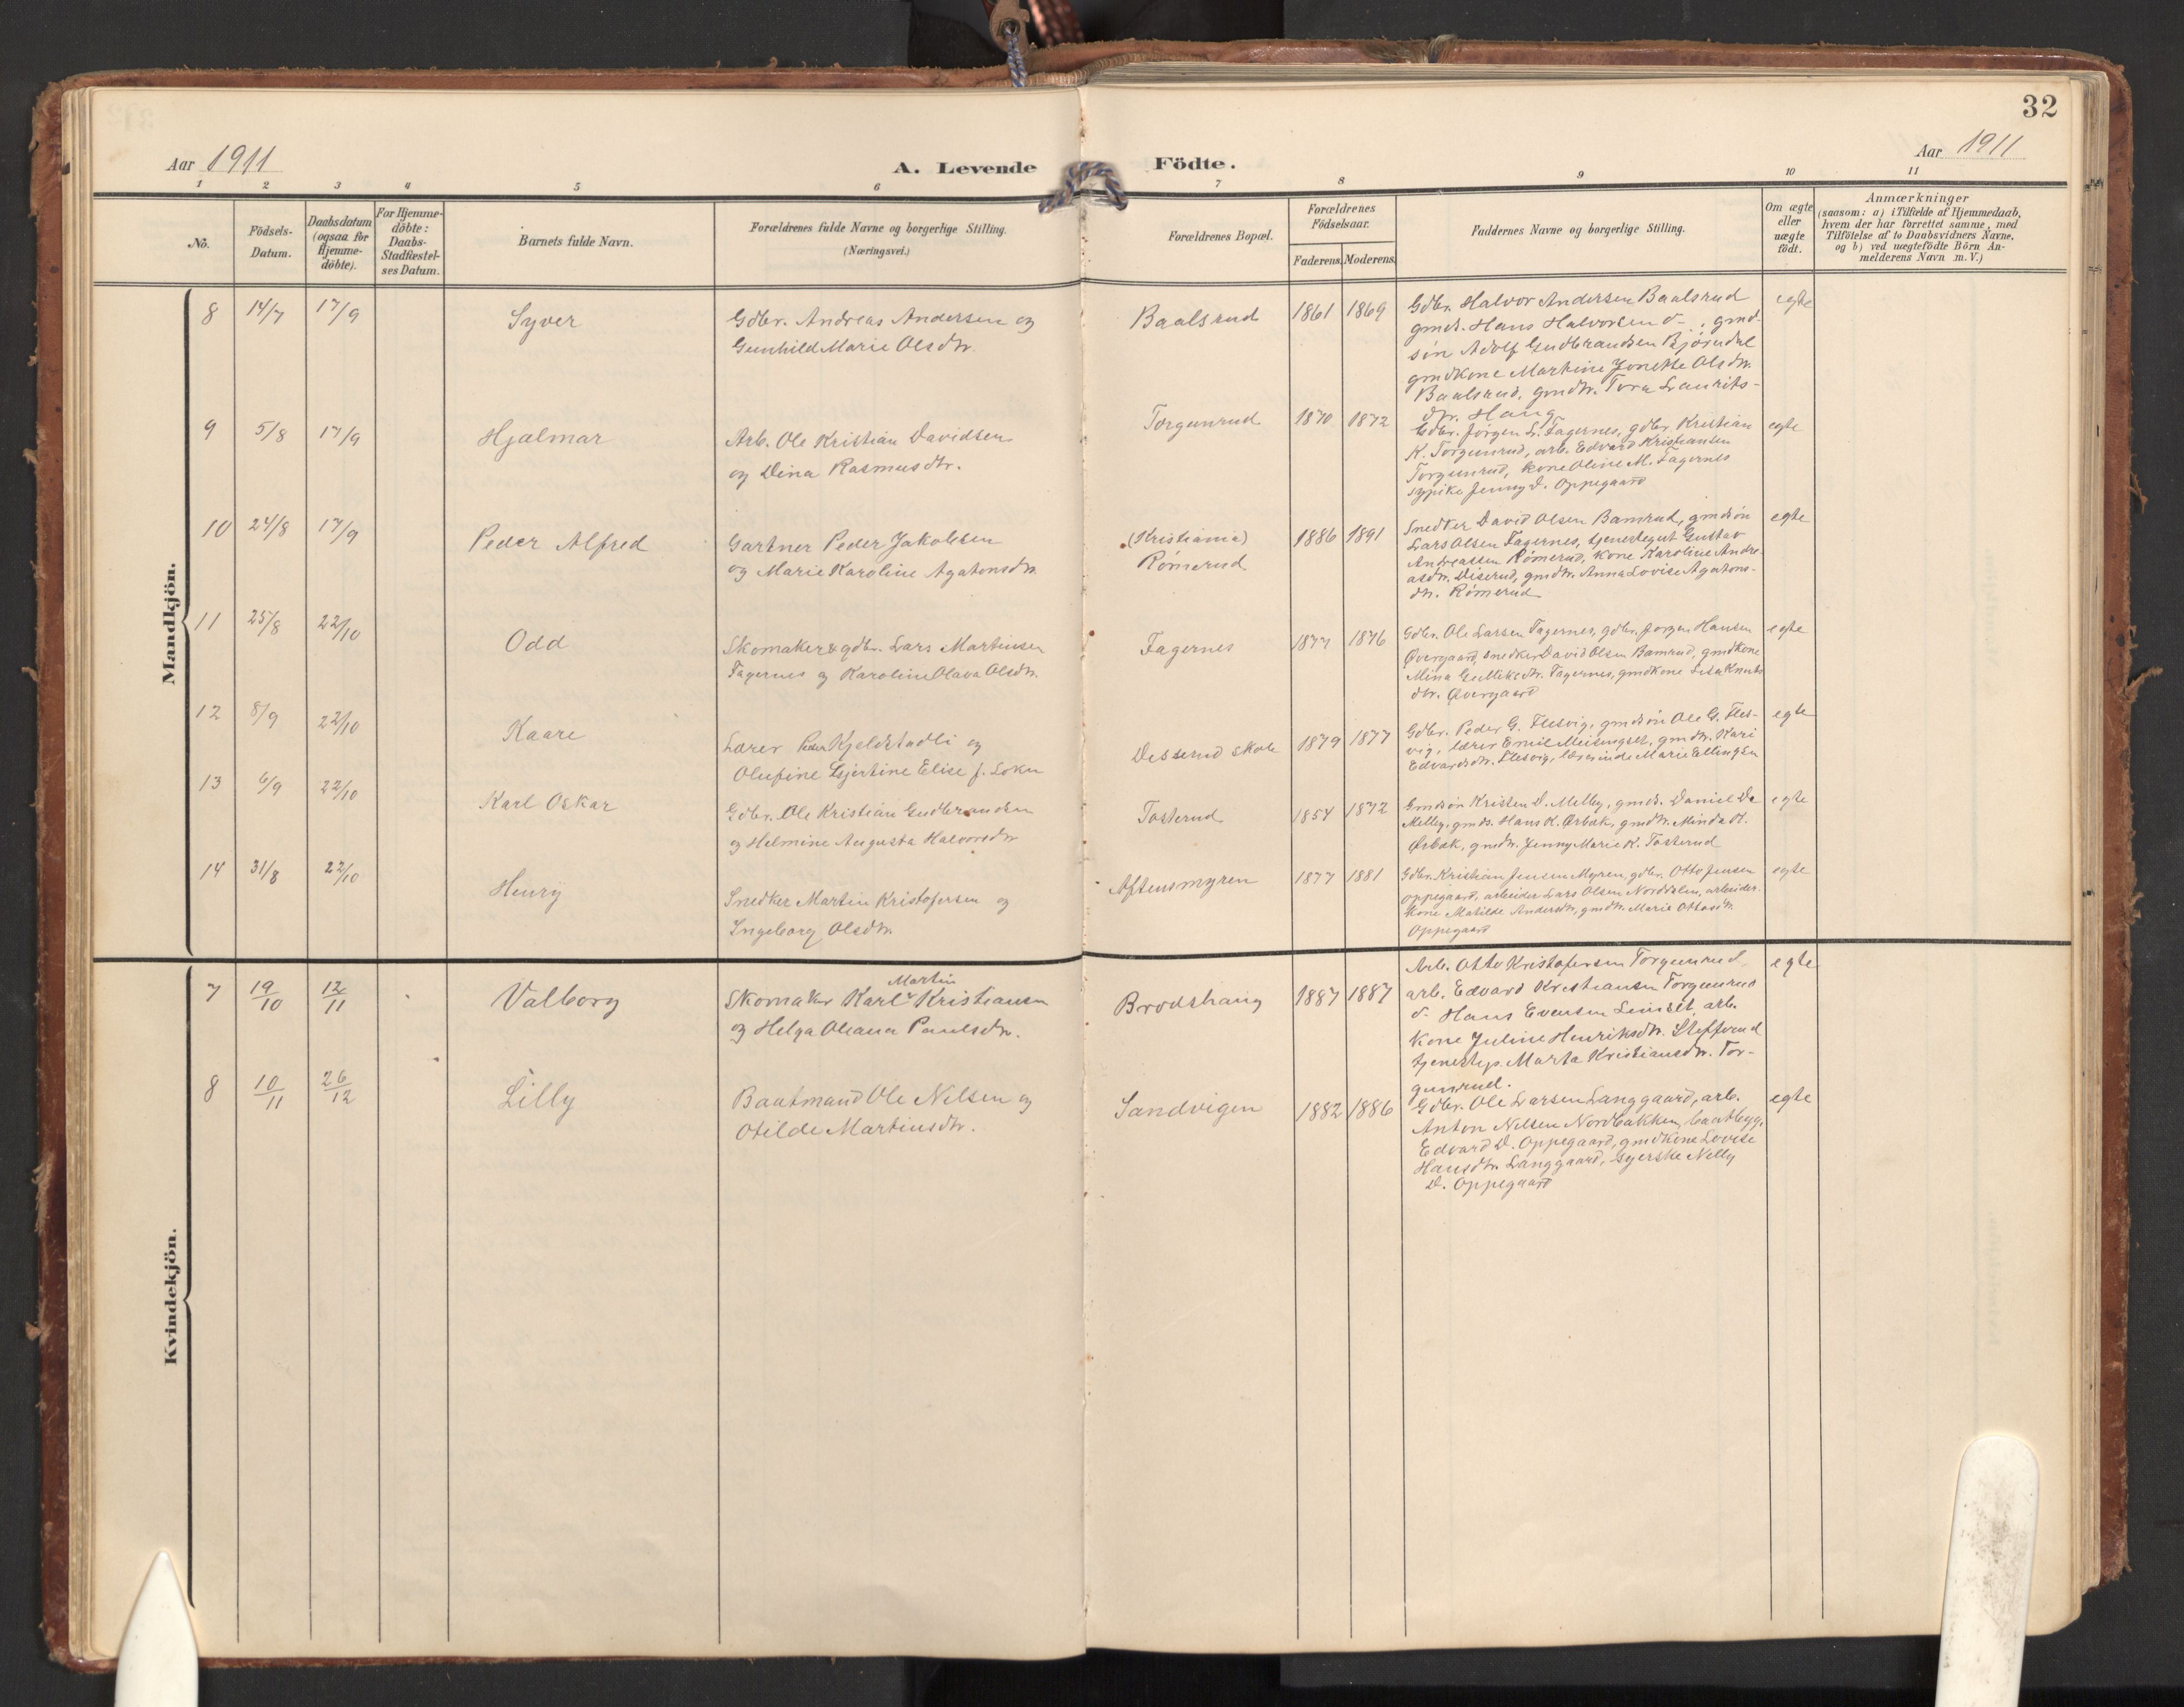 32
Aar 1911
A. Levende Födte.
Aar 1911
1 2 3 4 5 6 7 8 9 10 11
No.
Födsels-Datum.
Daabsdatum (ogsaa for Hjemme-döbte).
For Hjemme-döbte: Daabs-Stadfæstel-ses Datum.
Barnets fulde Navn.
Forældrenes fulde Navne og borgerlige Stilling.
(Næringsvei.)
Forældrenes Bopæl.
Forældrenes Födselsaar.
Faderens. Moderens.
Faddernes Navne og borgerlige Stilling.
Om ægte eller uægte födt.
Anmærkninger
(saasom: a) i Tilfælde af Hjemmedaab,
hvem der har forrettet samme, med
Tilföielse af to Daabsvidners Navne,
og b) ved uægtefödte Börn An-
melderens Navn m. V.)
Mandkjön.
8 14/7 17/9 Syver
Gdbr. Andreas Andersen og
Gunhild Marie Olsdtr.
Baalsrud 1861 1869
Gdbr. Halvor Andersen Baalsrud
gmds. Hans Halvorsen d- , gmd-
søn Adolf Gudbrandsen Bjørndal
gmdkone Martine Jonette Olsdtr.
Baalsrud, gmdtr. Tora Laurits-
dtr. Haug
egte
9 5/8 17/9 Hjalmar
Arb. Ole Kristian Davidsen
og Dina Rasmusdtr.
Torgunrud 1870 1872
Gdbr. Jørgen L. Fagernes, gdbr. Kristian
K. Torgunrud, arb. Edvard Kristiansen
Torgunrud, kone Oline M. Fagernes
sypike Jenny D. Oppegaard
egte
10 24/8 17/9 Peder Alfred
Gartner Peder Jakobsen
og Marie Karoline Agatonsdtr.
(Kristiania)
Rømerud
1886 1891
Snedker David Olsen Bamrud, gmdsøn
Lars Olsen Fagernes, tjenestegut Gustav
Andreassen Rømerud, kone Karoline Andre-
asdtr. Diserud, gmdtr. Anna Lovise Agatons-
dtr. Rømerud
egte
11 25/8 22/10 Odd
Skomaker & gdbr. Lars Martinsen
Fagernes og Karoline Olava Olsdtr.
Fagernes 1877 1876
Gdbr. Ole Larsen Fagernes, gdbr. Jørgen Hansen
Øvergaard, snedker David Olsen Bamrud, gmdkone
Mina Gulliksdtr. Fagernes, gmdkone Lisa Knuts
dtr. Øvergaard
egte
12 8/9 22/10 Kaare
Lærer Peder Kjeldstadli og
Olufine Gjertine Elise f. Løken
Desserud skole 1879 1877
Gdbr. Peder G. Flesvig, gmdsøn Ole G. Fles-
vig, lærer Emil Meisingset, gmdtr. Kari
Edvardsdtr. Flesvig, lærerinde Marie Ellingsen
egte
13 6/9 22/10 Karl Oskar
Gdbr. Ole Kristian Gudbrandsen
og Helmine Augusta Halvorsdtr
Tosterud 1854 1872
Gmdsøn Kristen D. Melby, gmds. Daniel Da
Melby, gmds. Hans K. Ørbæk, gmdtr. Minda K.
Ørbæk, gmdtr. Jenny Marie K. Tosterud
egte
14 31/8 22/10 Henry
Snedker Martin Kristofersen og
Ingeborg Olsdtr.
Aftensmyren 1877 1881
Gdbr. Kristian Jensen Myren, gdbr. Otto Jensen
Oppegaard, arbeider Lars Olsen Norddalen, arbeider-
kone Matilde Andersdtr, gmdtr. Marie Ottosdtr.
Oppegaard
egte
Kvindekjön.
7 19/10 12/11 Valborg
Martin
Skomaker Karl Kristiansen
og Helga Oleana Paulsdtr.
Brodshaug 1887 1887
Arb. Otto Kristofersen Torgunrud
arb. Edvard Kristiansen Torgunrud
d- Hans Evensen Linset, arb.
kone Juline Henriksdtr. Steffrud
tjenestep. Marta Kristiansdtr. Tor-
gunrud.
egte
8 10/11 26/12 Lilly
Baatmand Ole Nilsen og
Otilde Martinsdtr.
Sandvigen 1882 1886
Gdbr. Ole Larsen Langgaard, arb.
Anton Nilsen Nordbakken, baatbygg.
Edvard D. Oppegaard, gmdkone Lovise
Hansdtr. Langgaard, syerske Nelly
D. Oppegaard
egte